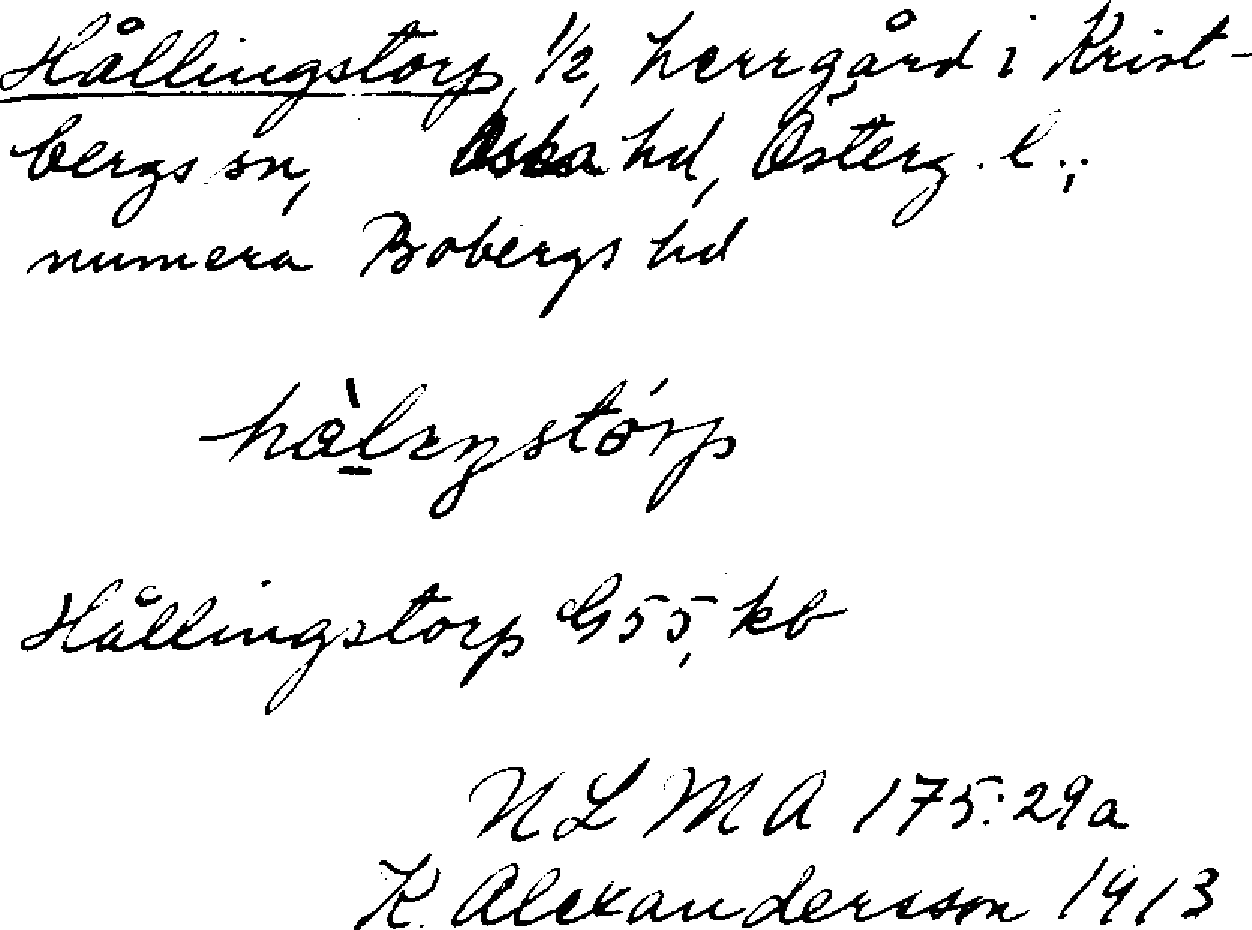 Hållingstorp, 1/2, herrgård i Krist-
bergs sn, Aska hd, Österg. l.;
numera Bobergs hd
hòlıŋstórp
Hållingstorp G55, kb
NLMA 175:29a
K. Alexandersson 1913